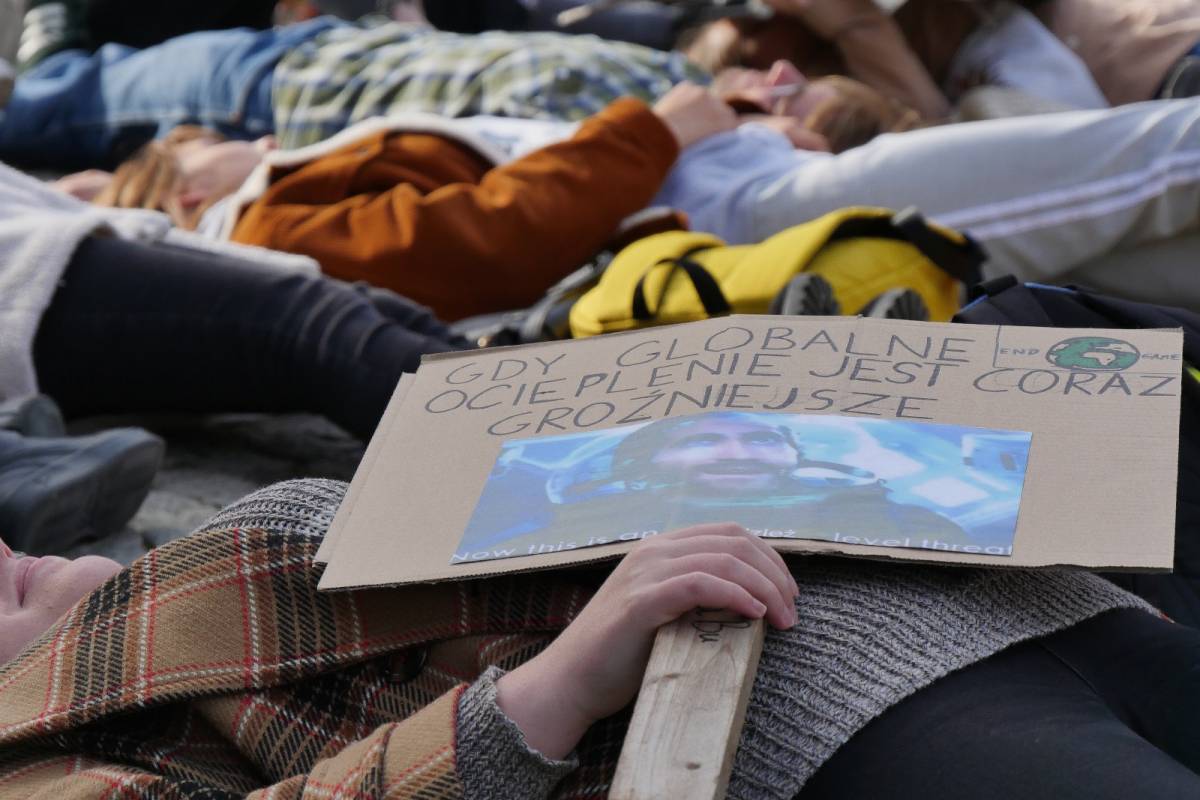 GDY GLOBALNE
END GAME
OCIEPLENIE JEST CORAZ
GROŹNIEJSZE
Now this is an level threat